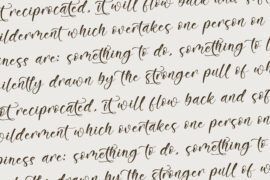 not reciprocated, it will flow back and sof
wilderment which overtakes one person on
piness are: something to do, something to
silently drawn by the stronger pull of wh
not reciprocated, it will flow back and sof
wilderment which overtakes one person on
piness are: something to do, something to
drawn by the stronger pull of w